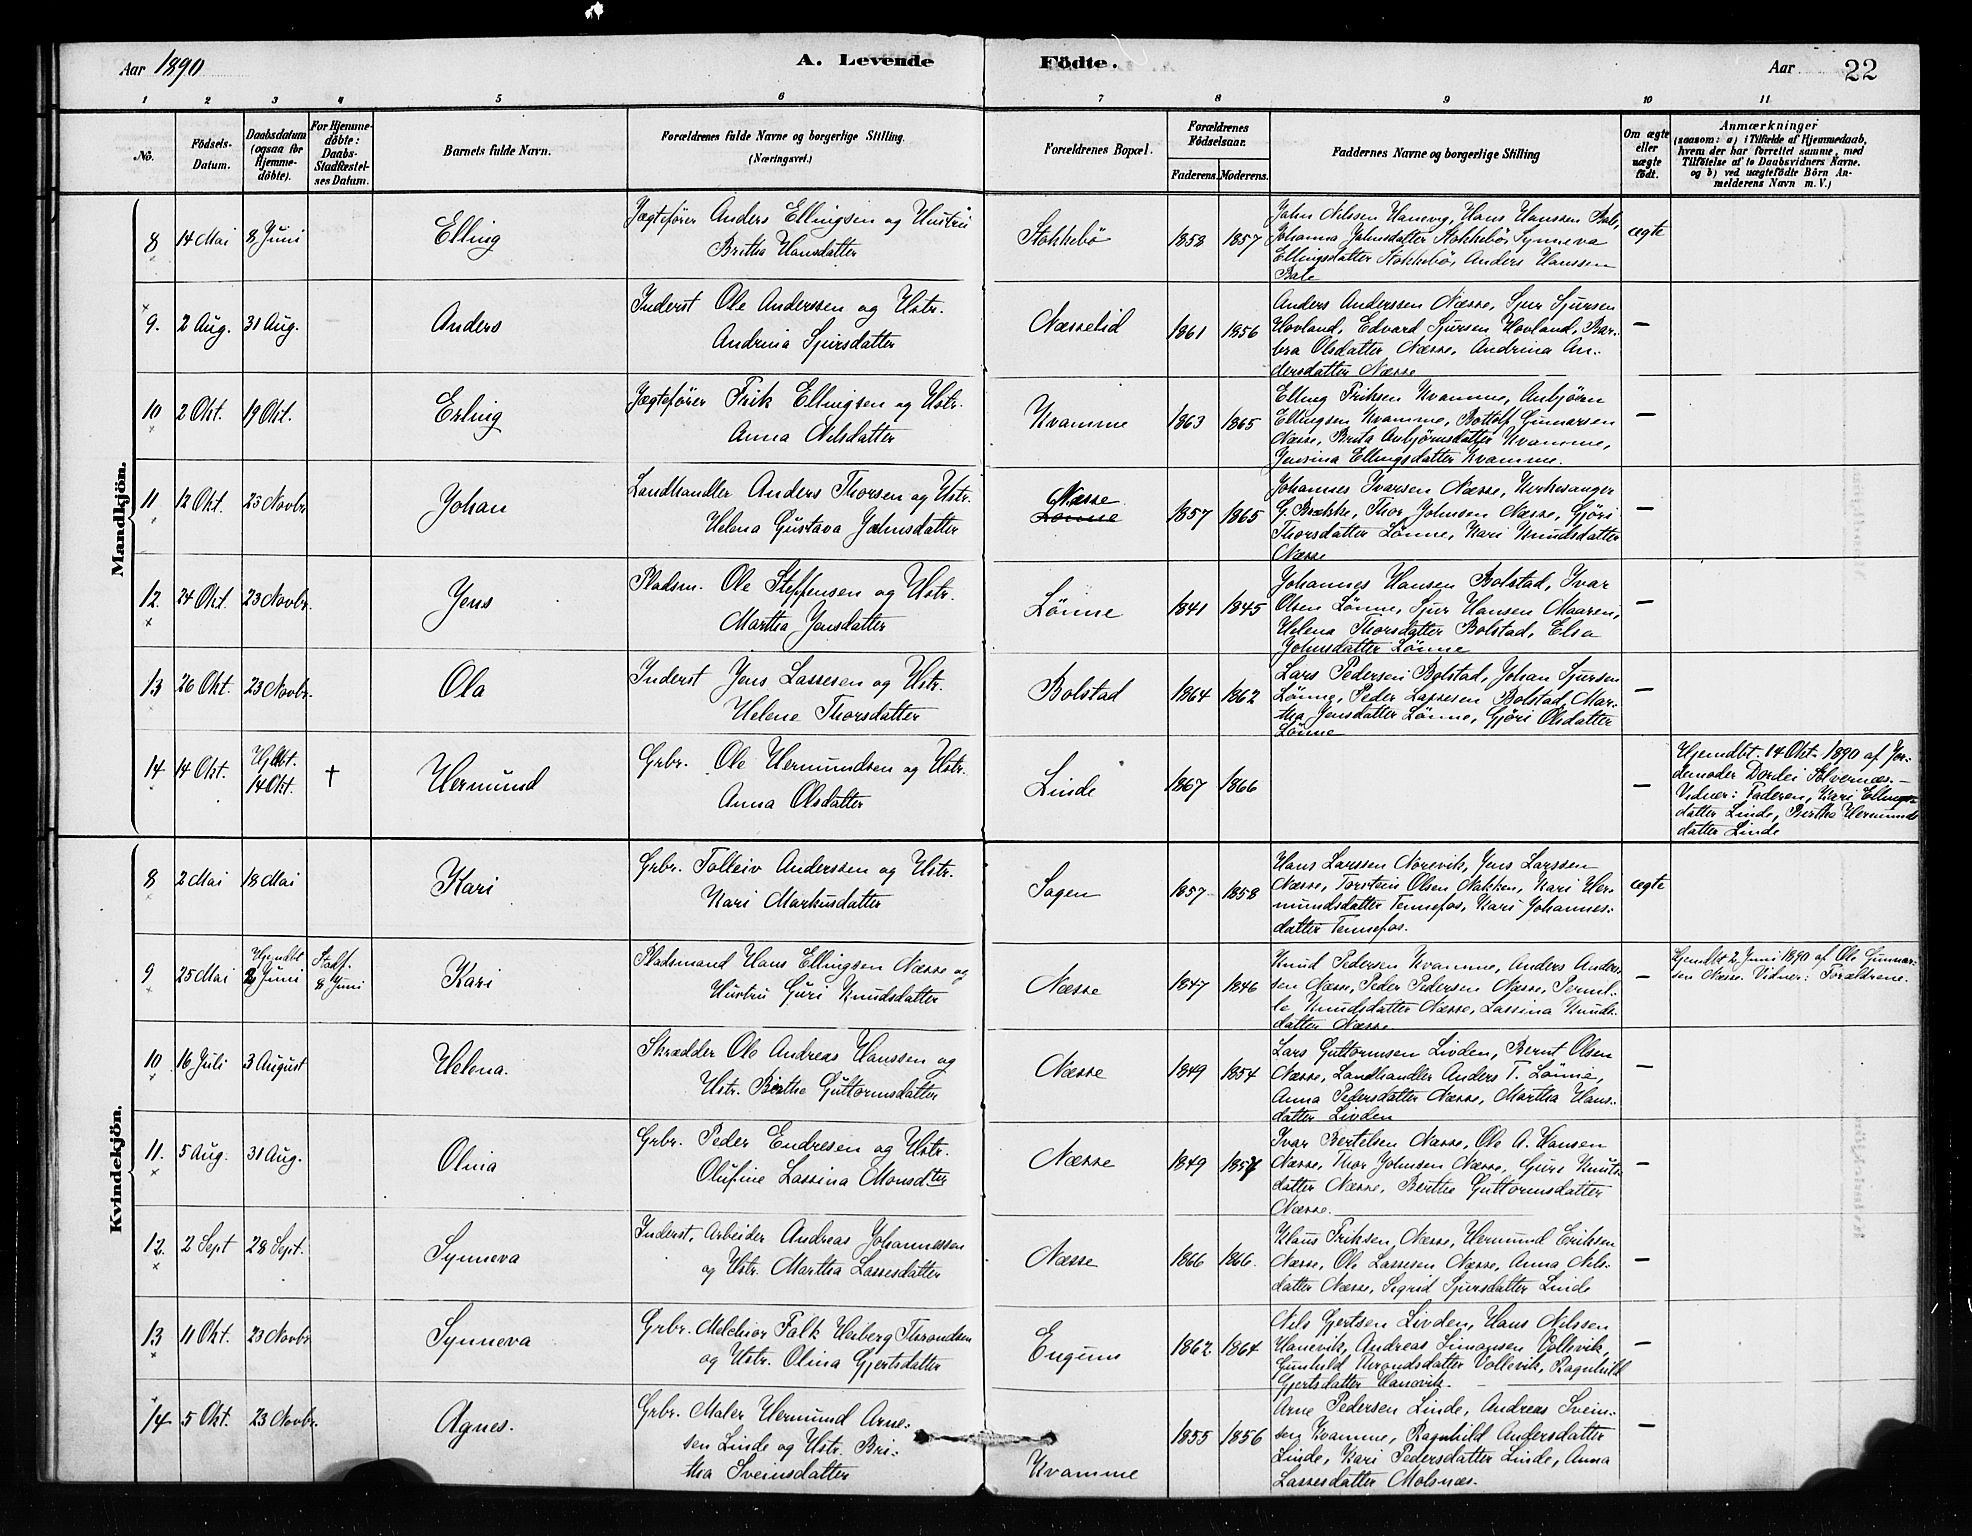 Aar 1890
A. Levende Födte.
Aar 22
1 2 3 4 5 6 7 8 9 10 11
No.
Födsels-Datum.
Daabsdatum (ogsaa for Hjemme-döbte).
For Hjemme-döbte: Daabs-Stadfæstel-ses Datum.
Barnets fulde Navn.
Forældrenes fulde Navne og borgerlige Stilling.
(Næringsvei.)
Forældrenes Bopæl.
Forældrenes Födselsaar.
Faderens. Moderens.
Faddernes Navne og borgerlige Stilling
Om ægte eller uægte födt.
Anmærkninger
(saasom: a) i Tilfælde af Hjemmedaab,
hvem der har forrettet samme, med
Tilföielse af to Daabsvidners Navne.
og b) ved uægtefödte Börn An-
melderens Navn m. V.)
Mandkjön.
8 14 Mai 8 Juni Elling
Jægtefører Anders Ellingsen og Hustru
Britha Hansdatter
Stokkebø 1858 1857
John Nilssen Hanevig, Hans Hanssen Bale,
Johanna Johnsdatter Stokkebø, Synneva
Ellingsdatter Stokkebø, Anders Hanssen
Bale
ægte
9. 2 Aug. 31 Aug. Anders
Inderst Ole Anderssen og Hstr.
Andrina Sjursdatter
Næsselid 1861 1856
Anders Anderssen Næsse, Sjur Sjursen
Hovland, Edvard Sjursen Hovland, Bar-
bra Olsdatter Næsse, Andrina An-
dersdatter Næsse
—
10 2 Okt. 19 Okt. Erling
Jægtefører Erik Ellingsen og Hstr.
Anna Nilsdatter
Kvamme 1863 1865
Elling Eriksen Kvamme, Anbjørn
Ellingsen Kvamme, Bottolf Gunnarsen
Næsse, Brita Anbjørnsdatter Kvamme,
Jensina Ellingsdatter Kvamme.
—
11 12 Okt. 23 Novbr. Johan
Landhandler Anders Thorsen og Hstr.
Helena Gustava Johnsdatter
Næsse
Lønne 1857 1865
Johannes Ivarsen Næsse, Kirkesanger
G. Brække, Thor Johnsen Næsse, Gjøri
Thorsdatter Lønne, Kari Knudsdatter
Næsse
—
12. 24 Okt. 23 Novbr. Jens
Pladsm. Ole Steffensen og Hstr.
Martha Jensdatter
Lønne 1841 1845
Johannes Hansen Bolstad, Ivar
Olsen Lønne, Sjur Hansen Maaren,
Helena Thorsdatter Bolstad, Elsa
Johnsdatter Lønne
—
13 26 Okt. 23 Novbr. Ola
Inderst Jens Lassesen og Hstr.
Helene Thorsdatter
Bolstad 1864 1862
Lars Pedersen Bolstad, Johan Sjursen
Lønne, Peder Lassesen Bolstad, Mar-
tha Jensdatter Lønne, Gjøri Olsdatter
Lønne
—
14 14 Okt. Hjdbt. 14 Okt. † Hermund
Grbr. Ole Hermundsen og Hstr.
Anna Olsdatter
Linde 1867 1866
—
Hjemdbt 14 Okt. 1890 af Jor-
demoder Dordei Sølvernæs.—
Vidner: Faderen, Kari Ellings-
datter Linde, Bertha Hermunds
datter Linde
Kvindekjön.
8 2 Mai 18 Mai Kari
Grbr. Tolleiv Anderssen og Hstr.
Kari Markusdatter
Sagen 1857 1858
Hans Larssen Norevik, Jens Larssen
Næsse, Torstein Olsen Nakken, Kari Her-
mundsdatter Tennefos, Kari Johannes-
datter Tennefos.
ægte
9 25 Mai Hjemdbt 2 Juni Stadf. 8 Juni Kari
Pladsmand Hans Ellingsen Næsse og
Hustru Guri Knudsdatter
Næsse 1847 1846
Knud Pedersen Kvamme, Anders Anders-
sen Næsse, Peder Pedersen Næsse, Pernil-
le Knudsdatter Næsse, Lassina Knuds-
datter Næsse
—
Hjemdbt 2 Juni 1890 af Ole Gunnar-
sen Næsse. Vidner: Forældrene.
10 16 Juli 3 August Helena.
Skrædder Ole Andreas Hanssen og
Hstr. Birthe Guttormsdatter
Næsse 1849 1854
Lars Guttormsen Livden, Bernt Olsen
Næsse, Landhandler Anders T. Lønne,
Anna Pedersdatter Næsse, Martha Hans-
datter Livden
—
11. 5 Aug. 31 Aug. Olina
Grbr. Peder Endresen og Hstr.
Olufine Lassina Monsdter
Næsse 1849 1857
Ivar Bertelsen Næsse, Ole A. Hansen
Næsse, Thor Johnsen Næsse, Guri Knuts-
datter Næsse, Berthe Guttormsdatter
Næsse.
—
12. 2 Sept 28 Sept. Synneva
Inderst, Arbeider Andreas Johannessen
og Hstr. Martha Lassesdatter
Næsse 1866 1866.
Klaus Eriksen Næsse, Hermund Eriksen
Næsse, Ole Lassesen Næsse, Anna Nils-
datter Næsse, Sigrid Sjursdatter Linde
—
13 11 Okt. 23 Novbr Synneva
Grbr. Melchior Falk Heiberg Throndsen
og Hstr. Olina Gjertsdatter
Engum 1862 1864
Nils Gjertsen Livden, Hans Nilssen
Hanevik, Andreas Simonsen Vollevik,
Gunhild Arondsdatter Vollevik, Ragnhild
Gjertsdatter Hanevik.
—
14 5 Okt. 23 Novbr. Agnes.
Grbr. Maler Hermund Arne-
sen Linde og Hstr. Bri-
tha Sveinsdatter
Kvamme 1855 1856
Arne Pedersen Linde, Andreas Svein-
sen Kvamme, Ragnhild Andersdatter
Linde, Kari Pedersdatter Linde, Anna
Lassesdatter Molsnæs.
—